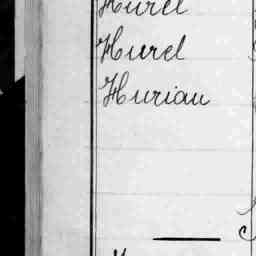 Hurel
Hurel
Huriau